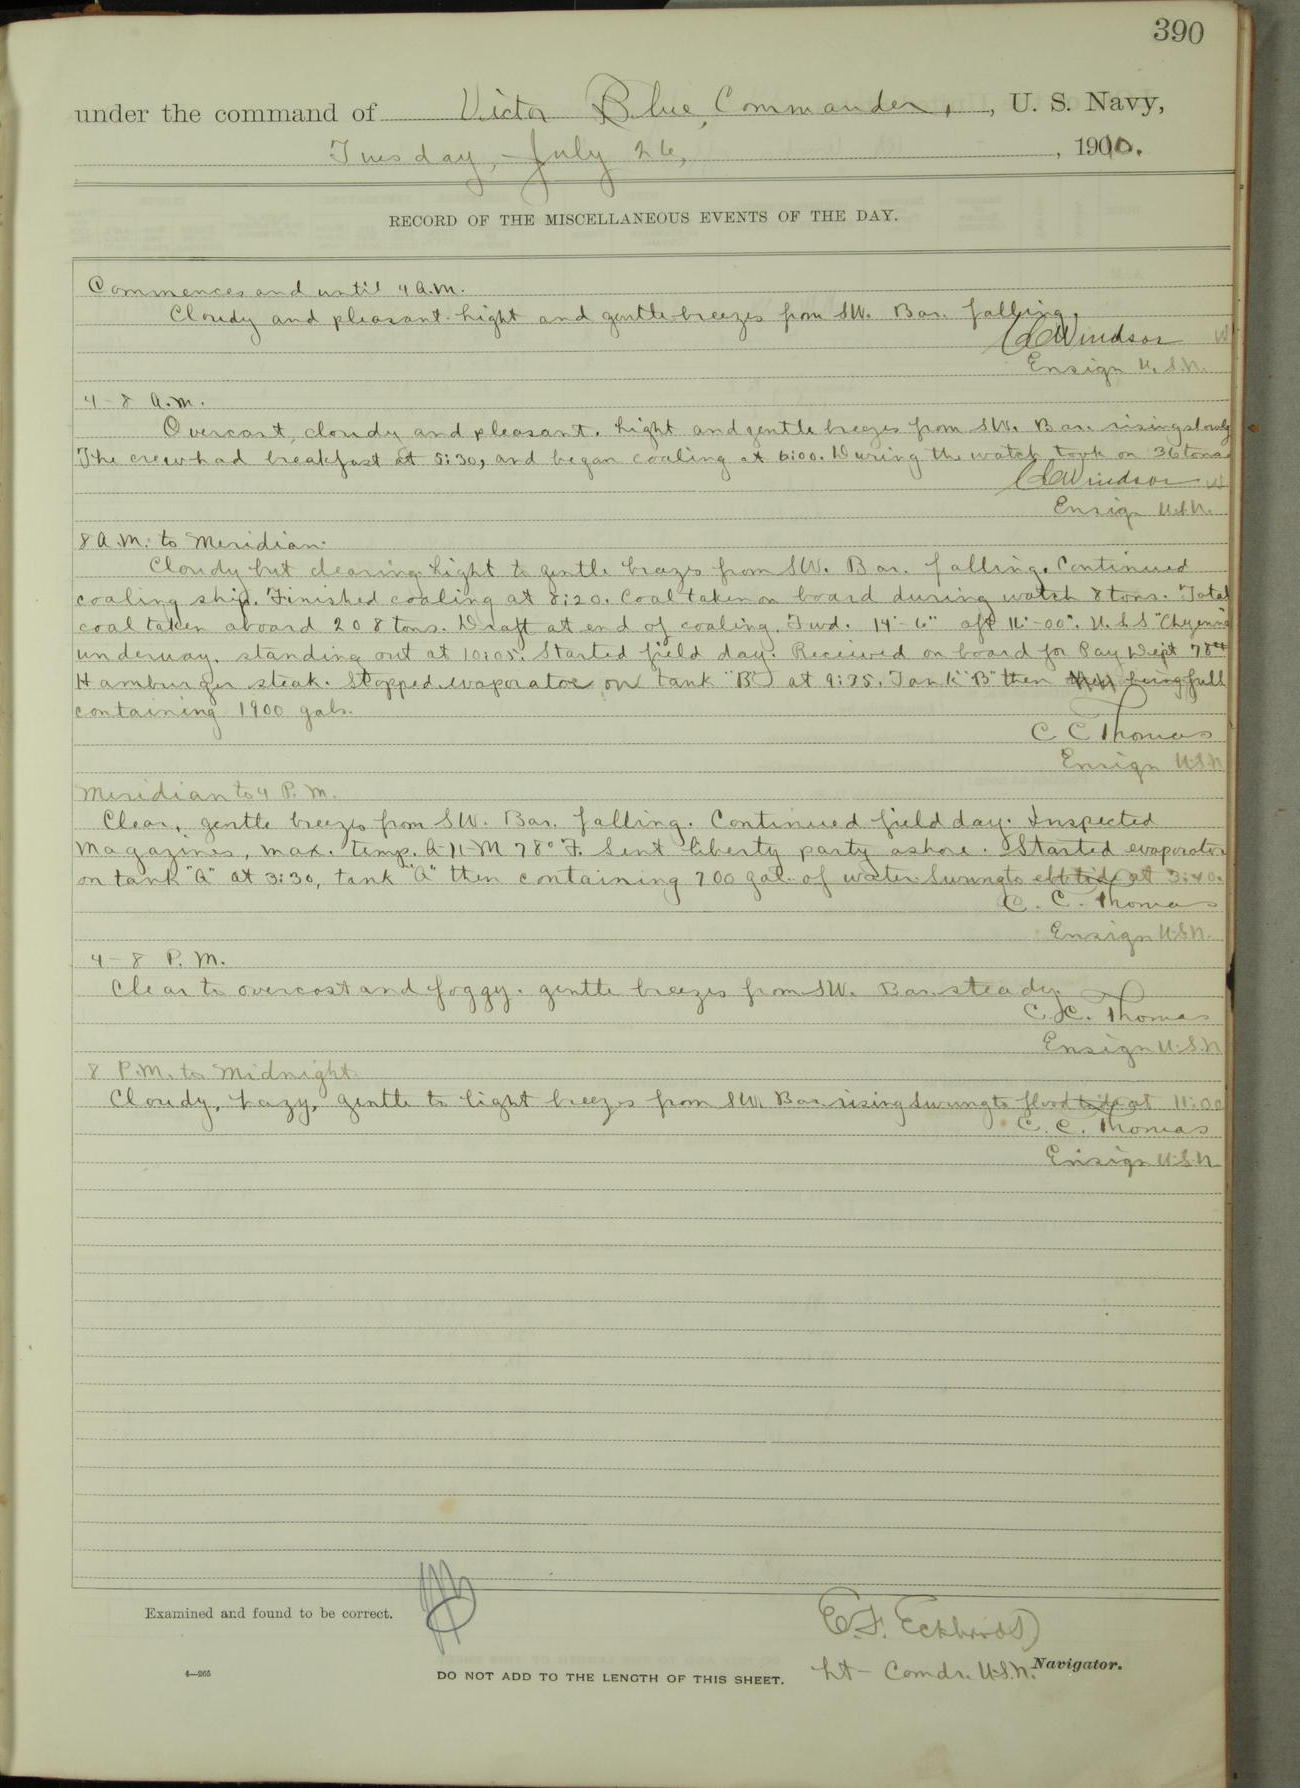 390
under the command of Victor Blue, Commander, , U. S. Navy,
Tuesday, July 26, , 1910.
RECORD OF THE MISCELLANEOUS EVENTS OF THE DAY.
Commences and until 4 a.m.
Cloudy and pleasant. Light and gentle breezes from SW. Bar. falling.
Windsor
Ensign U.S.N.
4-8 a.m.
Overcast, cloudy and pleasant. Light and gentle breezes from SW. Bar. rising slowly
The crew had breakfast at 5:30, and began coaling at 6:00. During the watch took on 36 tons
Windsor
Ensign U.S.N.
8 A.M. to Meridian.
Cloudy but clearing. Light to gentle breezes from SW. Bar. falling. Continued
coaling ship. Finished coaling at 8:20. Coal taken on board during watch 8 tons. Total
coal taken aboard 208 tons. Draft at end of coaling, Fwd. 14'-6" aft 16'-00". U.S.S "Cheyenne"
underway, standing out at 10:05. Started field day. Received on board for Pay Dept 78#
Hamburger steak. Stopped evaporator on tank "B" at 9:25. Tank "B" then being full
containing 1900 gals.
C C Thomas
Ensign U.S.N
Meridian to 4 P.M.
Clear, gentle breezes from SW. Bar. falling. Continued field day. Inspected
magazines, max. temp. A-11-M 78° F. Sent liberty party ashore. Started evaporator
on tank "A" at 3:30, tank "A" then containing 700 gal. of water. Swung to ebb tide at 3:40.
C. C. Thomas
Ensign U.S.N.
4-8 P.M.
Clear to overcast and foggy. gentle breezes from SW. Bar. steady.
C. C. Thomas
Ensign U.S.N
8 P.M. to Midnight.
Cloudy, hazy, gentle to light breezes from SW. Bar. rising Swung to flood tide at 11:00
C. C. Thomas
Ensign U.S.N
Examined and found to be correct.
E. F. Eckhardt
Lt-Comdr. U.S.N. Navigator.
4—265
DO NOT ADD TO THE LENGTH OF THIS SHEET.